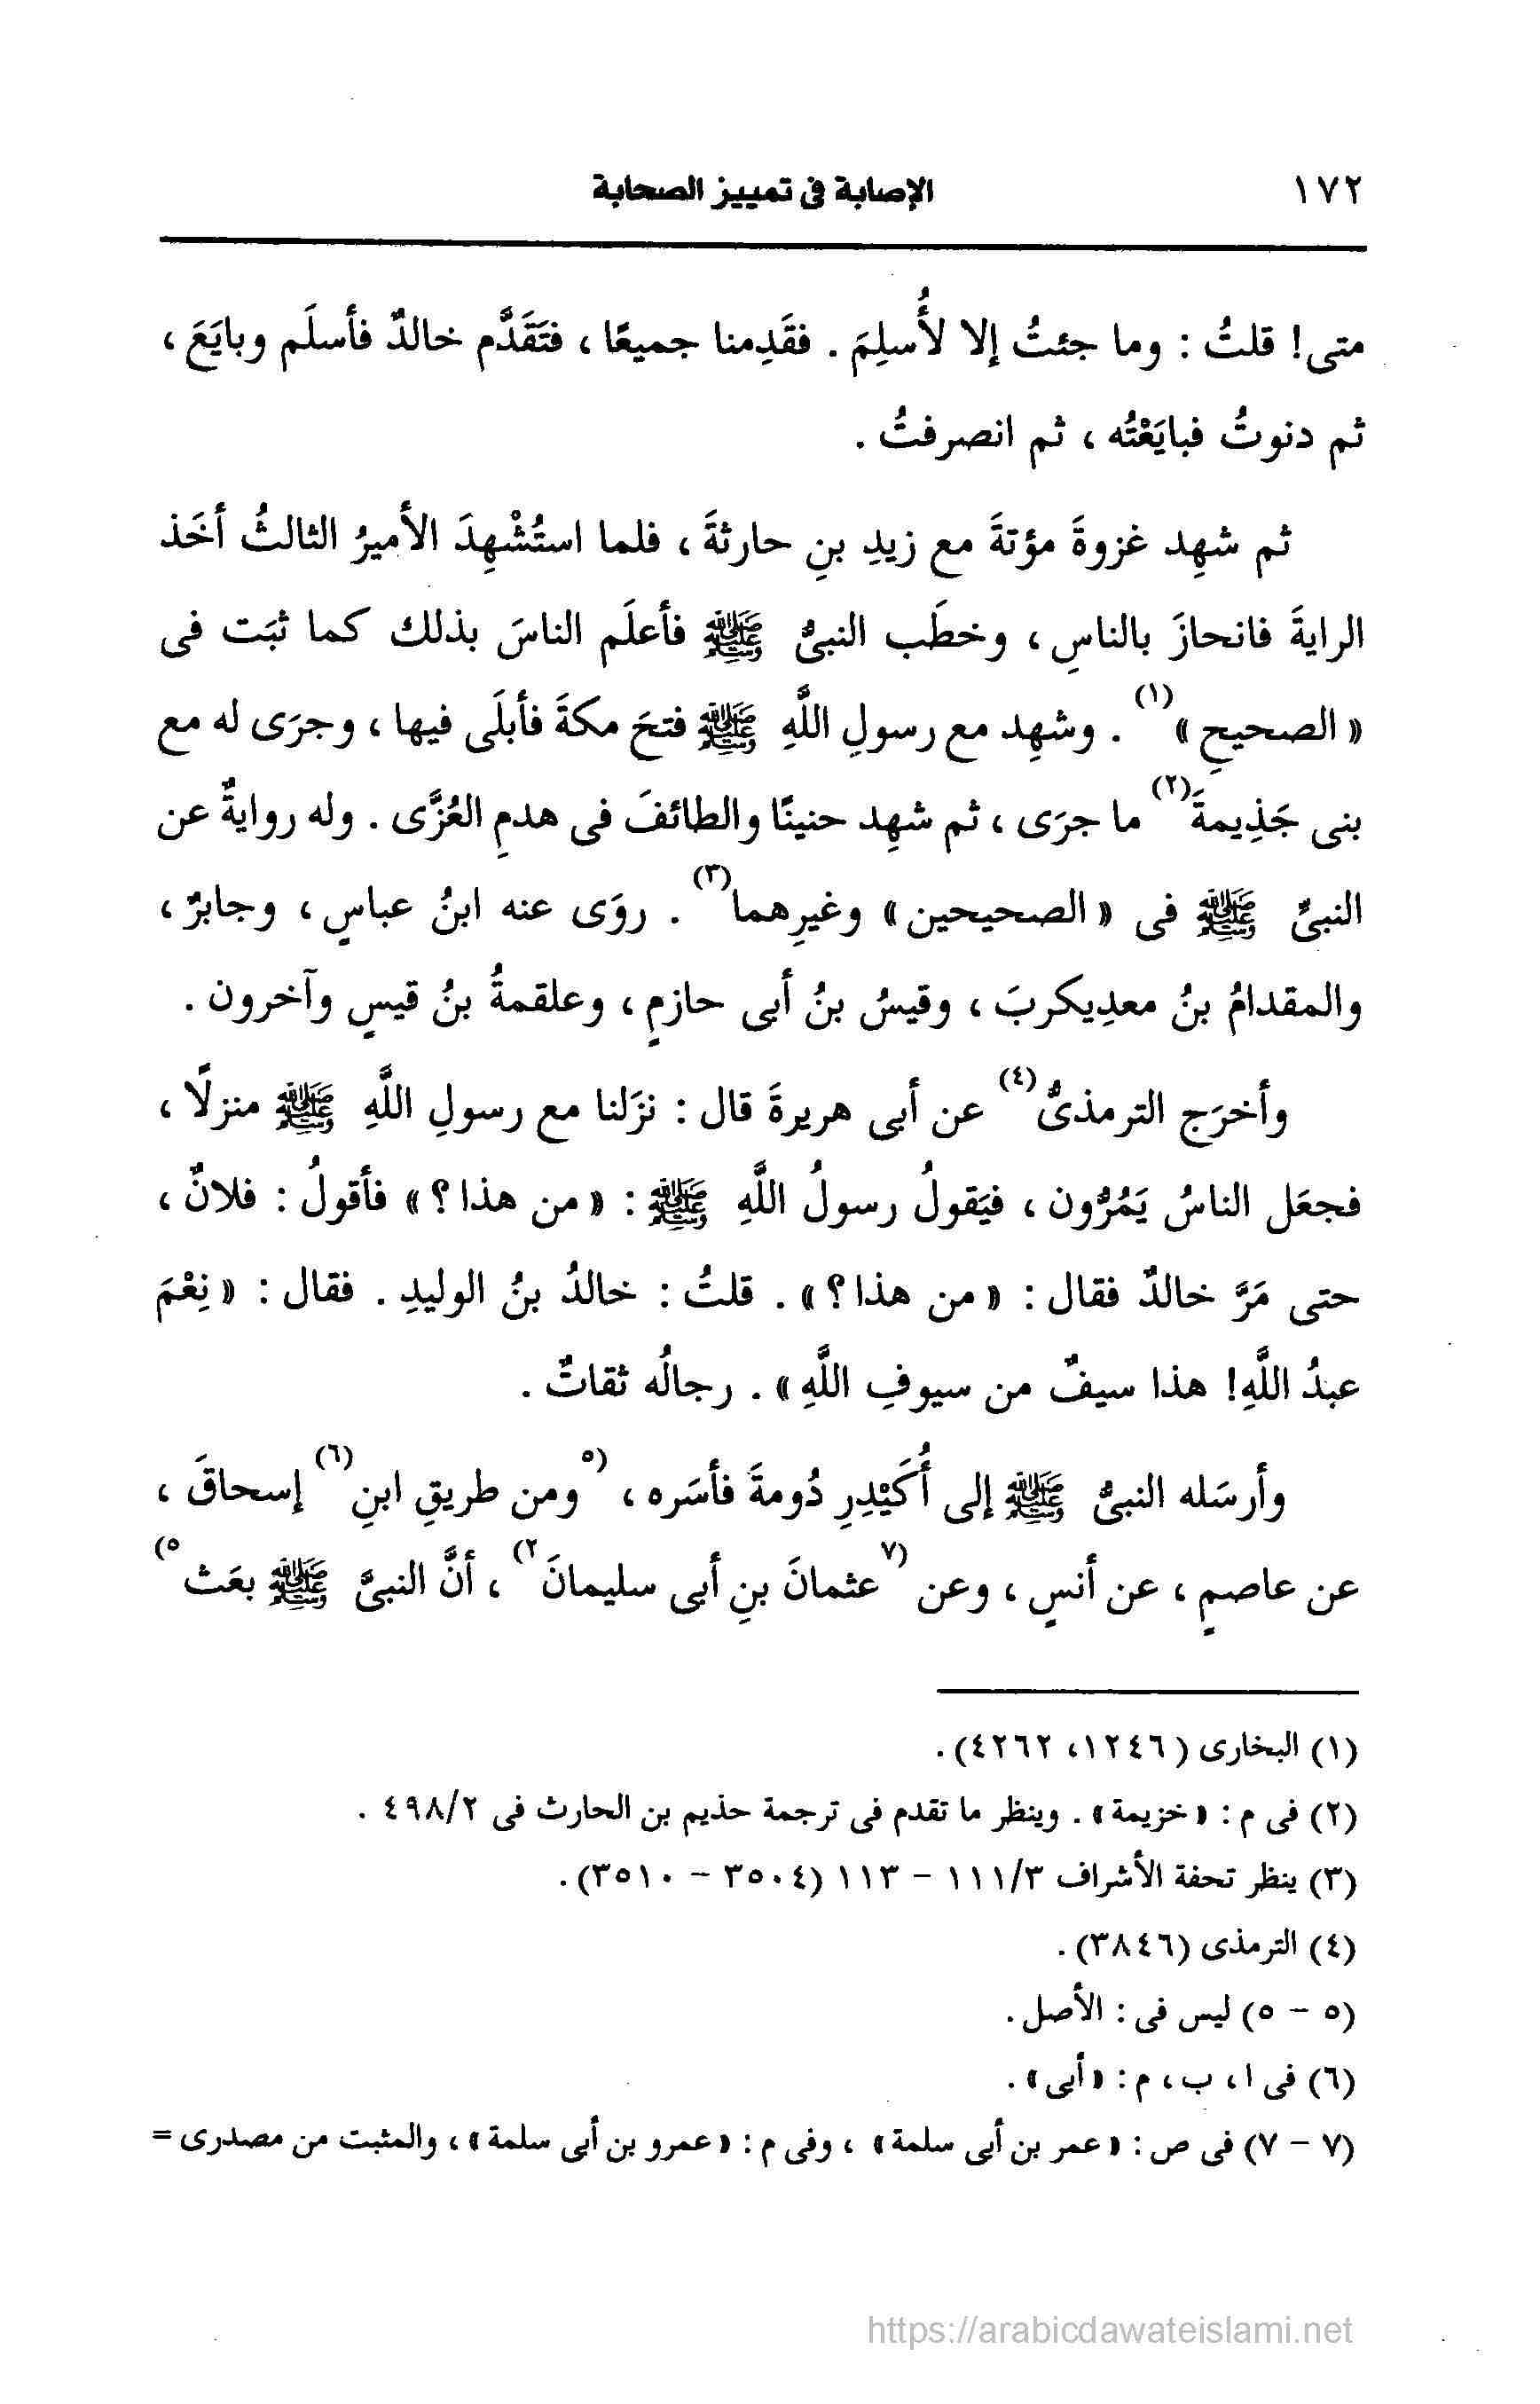 ١٧٢ الإصابة فى تمييز الصحابة
متى! قلتُ : وما جئتُ إلا لأُسلِمَ . فقَدِمنا جميعًا ، فتَقَدَّم خالدٌ فأسلَم وبايَعَ ،
ثم دنوتُ فبايَعْتُه ، ثم انصرفتُ .
ثم شهِد غزوةَ مؤتةَ مع زيدِ بنِ حارثةَ ، فلما استُشْهِدَ الأميرُ الثالثُ أخَذ
الرايةَ فانحازَ بالناسِ ، وخطَب النبىُّ ﷺ فأعلَم الناسَ بذلك كما ثبَت فى
« الصحيحِ »(١) . وشهِد مع رسولِ اللَّهِ ﷺ فتحَ مكةَ فأبلَى فيها ، وجرَى له مع
بنى جَذِيمةَ(٢) ما جرَى ، ثم شهِد حنينًا والطائفَ فى هدمِ العُزَّى . وله روايةٌ عن
النبىِّ ﷺ فى « الصحيحين » وغيرِهما(٣) . روَى عنه ابنُ عباسٍ ، وجابرٌ ،
والمقدامُ بنُ معدِيكربَ ، وقيسُ بنُ أبى حازمٍ ، وعلقمةُ بنُ قيسٍ وآخرون .
وأخرَج الترمذىُّ(٤) عن أبى هريرةَ قال : نزَلنا مع رسولِ اللَّهِ ﷺ منزلًا ،
فجعَل الناسُ يَمُرُّون ، فيَقولُ رسولُ اللَّهِ ﷺ : « من هذا ؟ » فأقولُ : فلانٌ ،
حتى مَرَّ خالدٌ فقال : « من هذا ؟ » . قلتُ : خالدُ بنُ الوليدِ . فقال : « نِعْمَ
عبدُ اللَّهِ! هذا سيفٌ من سيوفِ اللَّهِ » . رجالُه ثقاتٌ .
وأرسَله النبىُّ ﷺ إلى أُكَيْدِرِ دُومةَ فأسَره ، (٥ومن طريقِ ابنِ(٦) إسحاقَ ،
عن عاصمٍ ، عن أنسٍ ، وعن (٧عثمانَ بنِ أبى سليمانَ٢) ، أنَّ النبىَّ ﷺ بعَث٥)
(١) البخارى (١٢٤٦، ٤٢٦٢) .
(٢) فى م : « خزيمة » . وينظر ما تقدم فى ترجمة حذيم بن الحارث فى ٤٩٨/٢ .
(٣) ينظر تحفة الأشراف ١١١/٣ - ١١٣ (٣٥٠٤ - ٣٥١٠).
(٤) الترمذى (٣٨٤٦) .
(٥ - ٥) ليس فى : الأصل .
(٦) فى ا ، ب ، م : « أبى » .
(٧ - ٧) فى ص : « عمر بن أبى سلمة » ، وفى م : « عمرو بن أبى سلمة » ، والمثبت من مصدرى =
https://arabicdawateislami.net